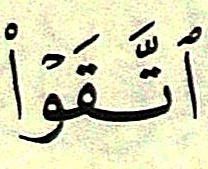 ٱتَّقَوۡاْ